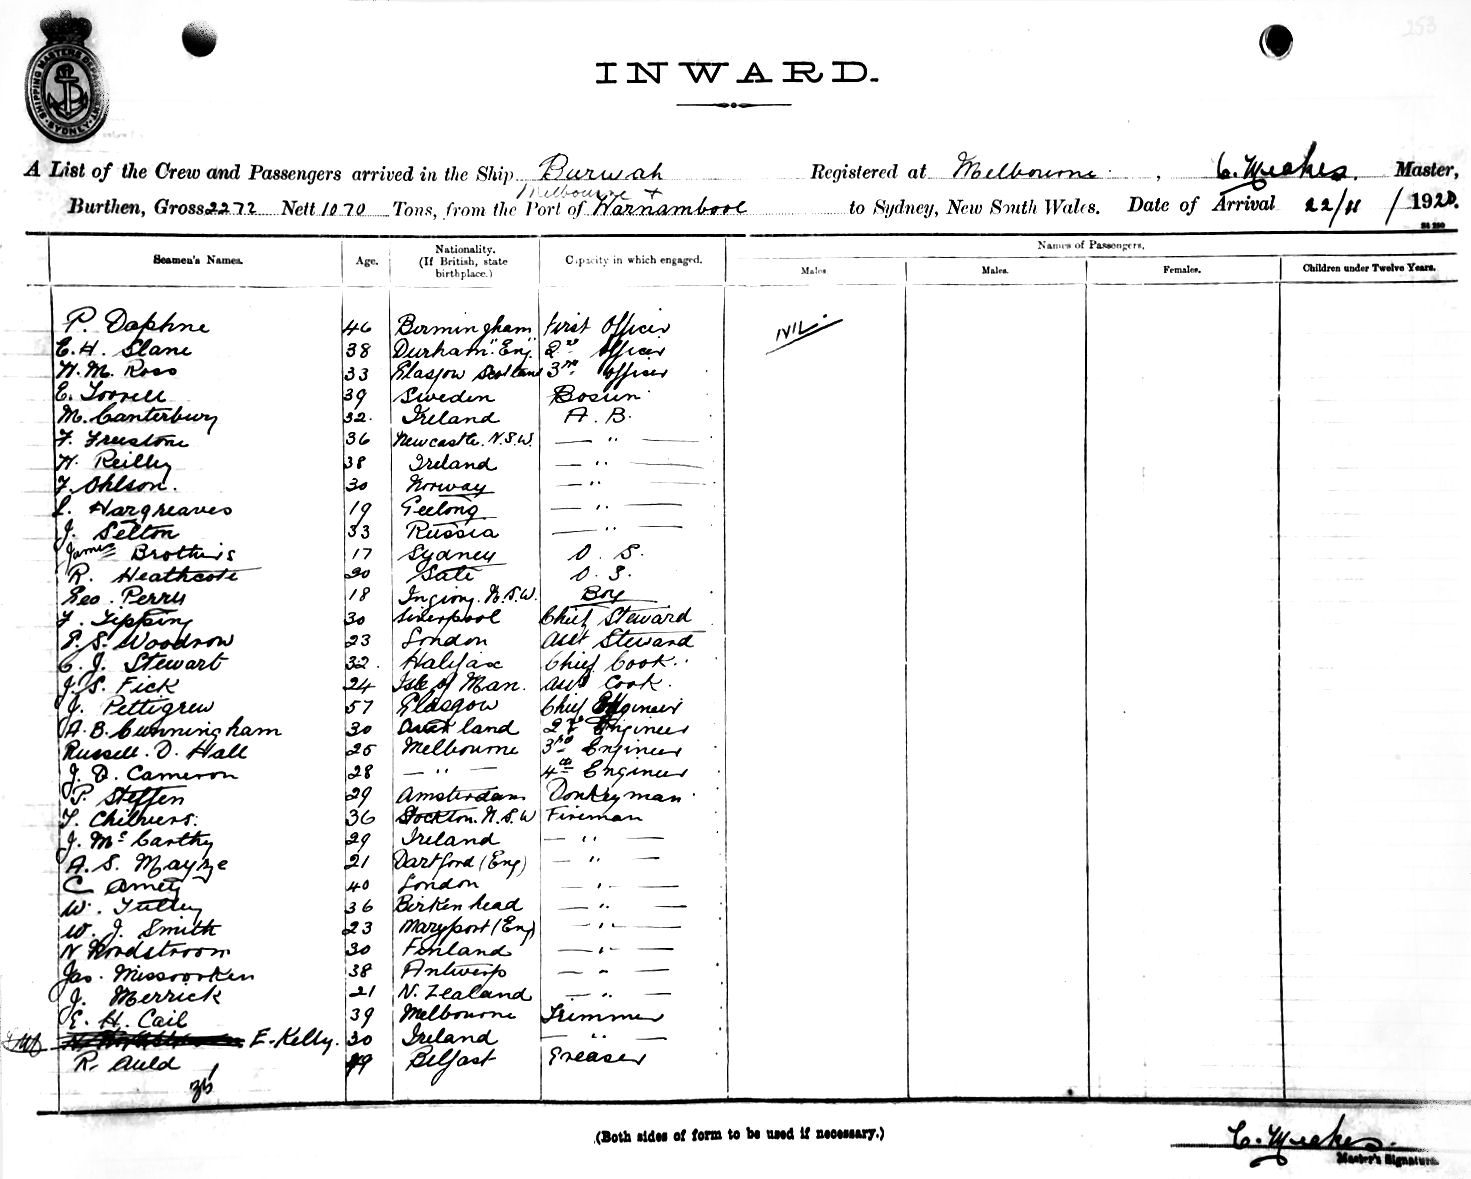 253
SHIPPING MASTERS DEPARTMENT SYDNEY
INWARD.
A List of the Crew and Passengers arrived in the Ship Burwah Registered at Melbourne, C. Meekes. Master,
Melbourne +
Burthen, Gross 2272 Nett 1070 Tons, from the Port of Warnambool to Sydney, New South Wales. Date of Arrival 22/11/1920.
Seamen's Names. Age. Nationality. (If British, state birthplace.) Capacity in which engaged. Names of Passengers.
Males Males. Females. Children under Twelve Years.
P. Daphne 46 Birmingham First Officer NIL.
E. H. Slane 38 Durham "Eng" 2nd Officer
W. M. Ross 33 Glasgow Scotland 3rd Officer
E. 39 Sweden Bosun
M. Canterbury 32. Ireland A. B.
F. Freestone 36 Newcastle. N.S.W. — " —
H. Reilly 38 Ireland — " —
F. Ohlson. 30 Norway — " —
L. Hargreaves 19 Geelong — " —
J. Selton 33 Russia — " —
James Brothers 17 Sydney O. S.
R. Heathcote 20 O. S.
Geo. Perry 18 N.S.W. Boy
F. Tipping 30 Liverpool Chief Steward
E. S. Woodrow 23 London Asst Steward
C. J. Stewart 32. Halifax Chief Cook.
J. S. Fick 24 Isle of Man. Asst Cook.
J. Pettigrew 57 Glasgow Chief Engineer
A. B. Cunningham 30 land 2nd Engineer
Russell. D. Hall 25 Melbourne 3rd Engineer
J. D. Cameron 28 — " — 4th Engineer
P. Steffen 29 Amsterdam Donkeyman
T. Chilvers. 36 Stockton. N.S.W Fireman
J. McCarthy 29 Ireland — " —
A. S. Mayze 21 Dartford (Eng) — " —
C Amety 40 London — " —
W. Tulley 36 Birkenhead — " —
W. J. Smith 23 Maryport (Eng) — " —
N Nordstroom 30 Finland — " —
Jas. Missoorken 38 Antwerp — " —
J. Merrick 21 N. Zealand — " —
E. H. Cail 39 Melbourne Trimmer
E. Kelly. 30 Ireland — " —
R. Auld 49 Belfast Greaser
(Both sides of form to be used if necessary.)
C. Meekes.
Master's Signature.